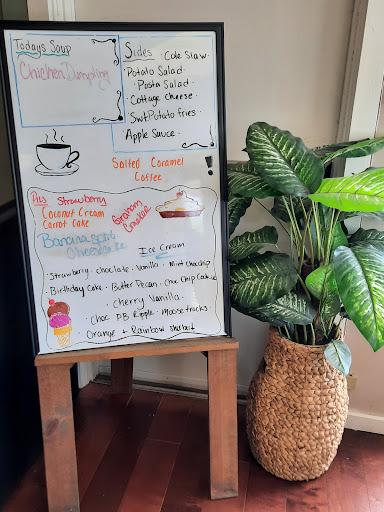 Todays Soup
Chicken Dumpling
Sides · Cole Slaw
· Potato Salad
· Pasta Salad
· Cottage Cheese
· Swt Potato fries
· Apple Sauce
Salted Caramel
Coffee
Pies Strawberry
Coconut Cream
Carrot Cake
Graham Cracker
Banana Split
Cheesecake
Ice Cream
· Strawberry · chocolate · Vanilla · Mint Choc chip
· Birthday Cake · Butter Pecan · Choc Chip Cookie
· Cherry Vanilla
· Choc PB Ripple · Moosetracks
· Orange + Rainbow sherbet